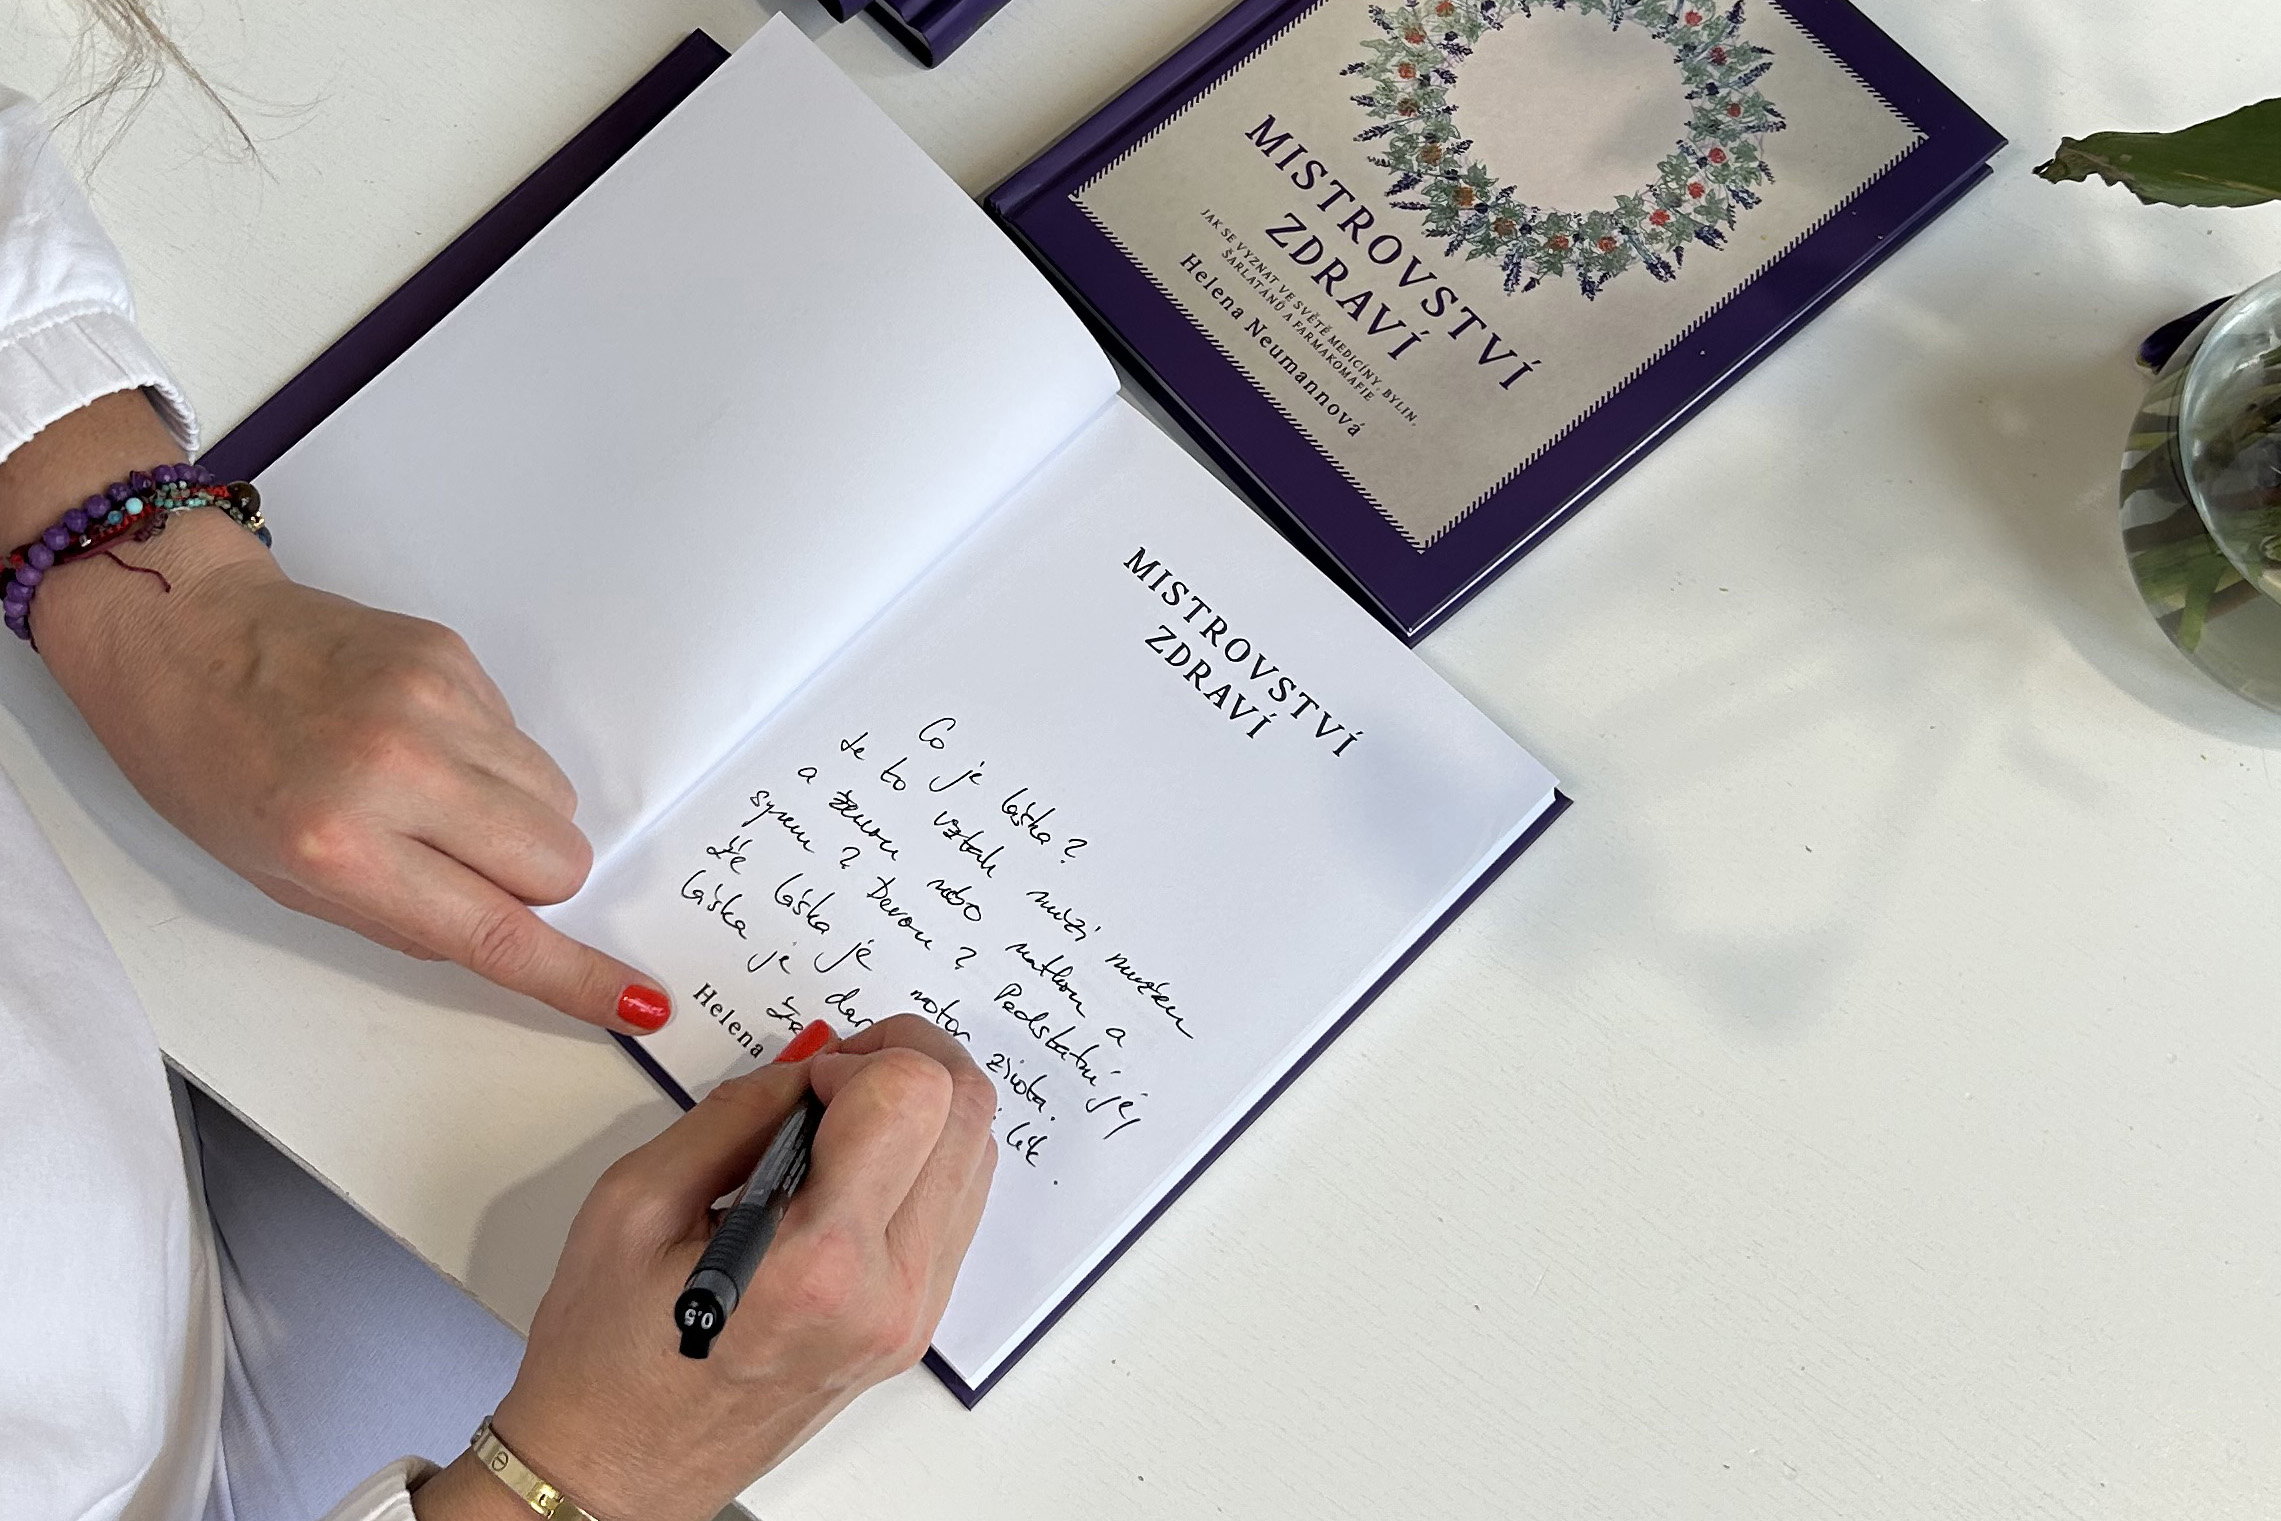 MISTROVSTVÍ
ZDRAVÍ
JAK SE VYZNAT VE SVĚTĚ MEDICÍNY, BYLIN,
ŠARLATÁNŮ A FARMAKOMAFIE
Helena Neumannová
MISTROVSTVÍ
ZDRAVÍ
Co je láska?
Je to vztah mezi mužem
a ženou nebo matkou a
synem? Dcerou? Podstatné je,
že láska je motor života.
láska je dar lék.
Helena
0.5